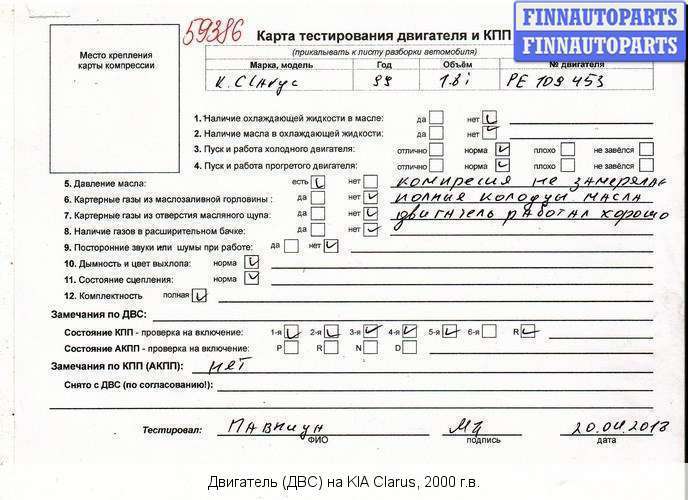 59386
Карта тестирования двигателя и КПП
FINNAUTOPARTS
FINNAUTOPARTS
(прикалывать к листу разборки автомобиля)
Место крепления
карты компрессии
Марка, модель Год Объём № двигателя
К. Сlarус 99 1.8i РЕ 109 453
1. Наличие охлаждающей жидкости в масле: да нет
2. Наличие масла в охлаждающей жидкости: да нет
3. Пуск и работа холодного двигателя: отлично норма плохо не завёлся
4. Пуск и работа прогретого двигателя: отлично норма плохо не завёлся
5. Давление масла: есть нет компресия не замерялас
6. Картерные газы из маслозаливной горловины : да нет полние колодци масла
7. Картерные газы из отверстия масляного щупа: да нет двигатель работал хорошо
8. Наличие газов в расширительном бачке: да нет
9. Посторонние звуки или шумы при работе: да нет
10. Дымность и цвет выхлопа: норма
11. Состояние сцепления: норма
12. Комплектность полная
Замечания по ДВС:
Состояние КПП - проверка на включение: 1-я 2-я 3-я 4-я 5-я 6-я R
Состояние АКПП - проверка на включение: P R N D
Замечания по КПП (АКПП): нет
Снято с ДВС (по согласованию!):
Тестировал: 20.04.2013
ФИО подпись дата
Двигатель (ДВС) на KIA Clarus, 2000 г.в.